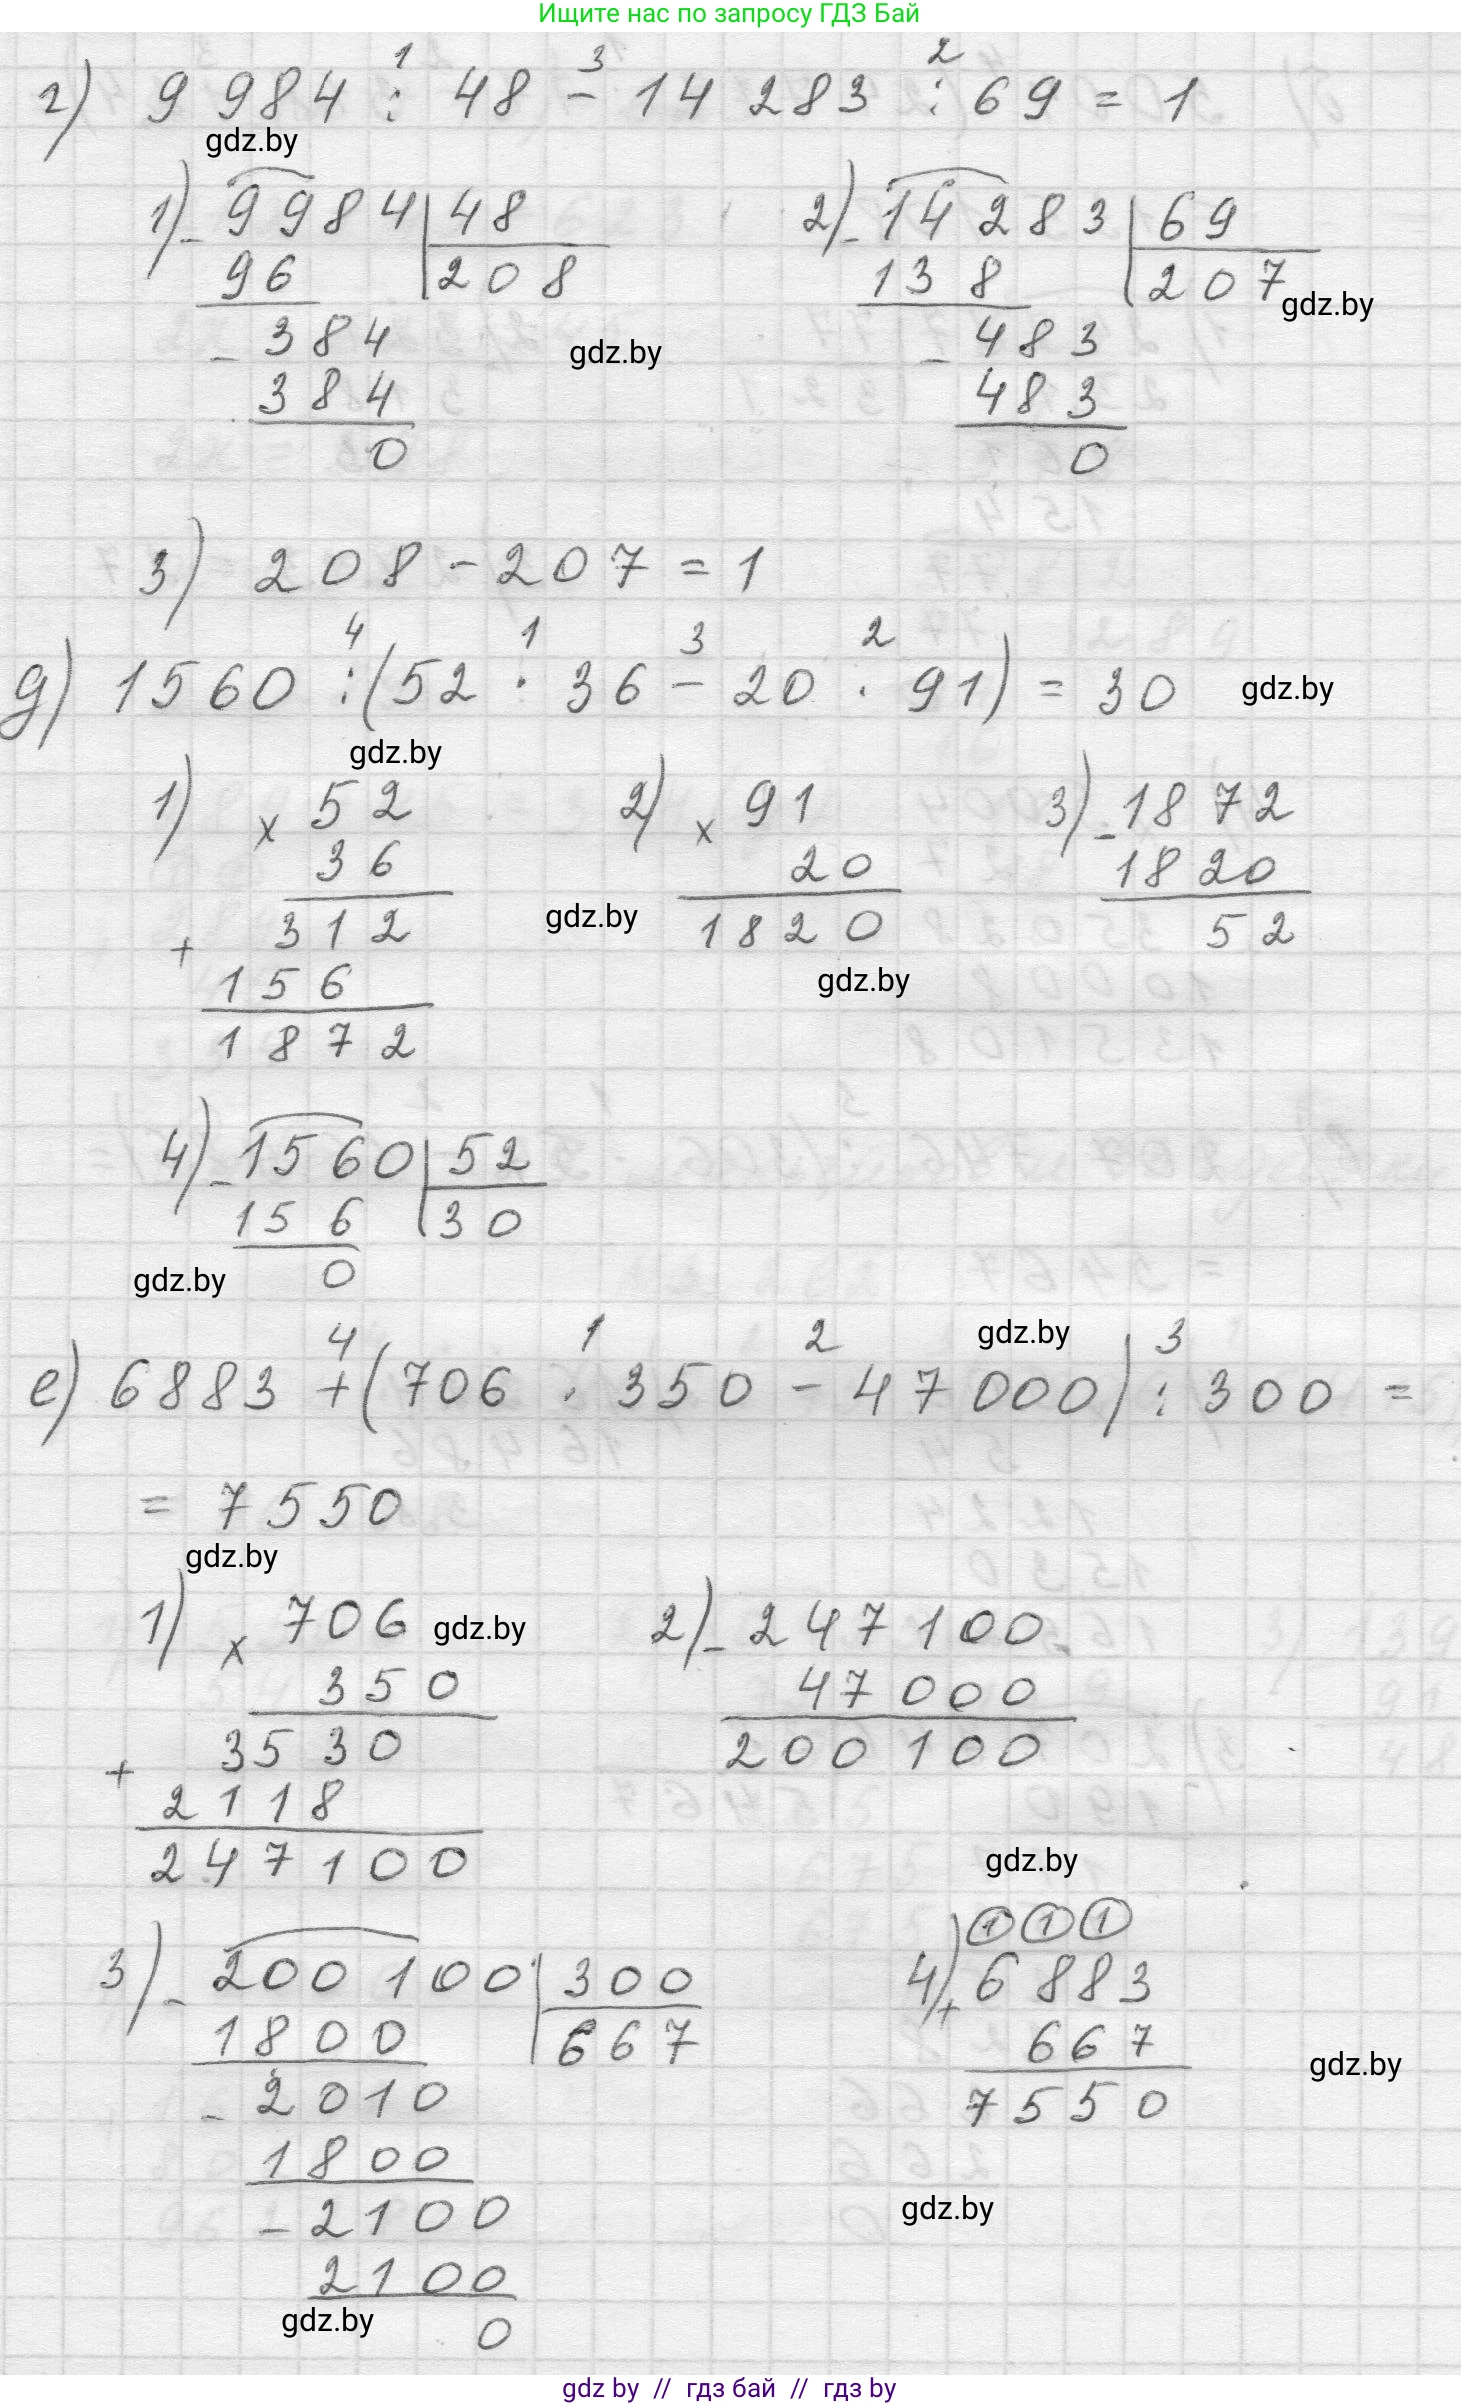 Ищите нас по запросу ГДЗ Бай
г) 9 984 : 48 - 14 283 : 69 = 1
1 3 2
gdz.by
1) - 9984 | 48
96 | 208
- 384
384
0
2) - 14 283 | 69
138 | 207
- 483
483
0
gdz.by
gdz.by
3) 208 - 207 = 1
4 1 3 2
д) 1560 : (52 · 36 - 20 · 91) = 30
gdz.by
gdz.by
1) × 52
36
312
+
156
1872
2) × 91
20
1820
3) - 1872
1820
52
gdz.by
gdz.by
4) - 1560 | 52
156 | 30
0
gdz.by
gdz.by
4 1 2 3
е) 6883 + (706 · 350 - 47 000) : 300 =
= 7550
gdz.by
1) × 706
350
3530
+
2118
247100
gdz.by
2) - 247 100
47 000
200 100
gdz.by
3) - 200 100 | 300
1800 | 667
- 2010
1800
- 2100
2100
0
1 1 1
4) + 6883
667
7550
gdz.by
gdz.by
gdz.by
gdz by // гдз бай // гдз by